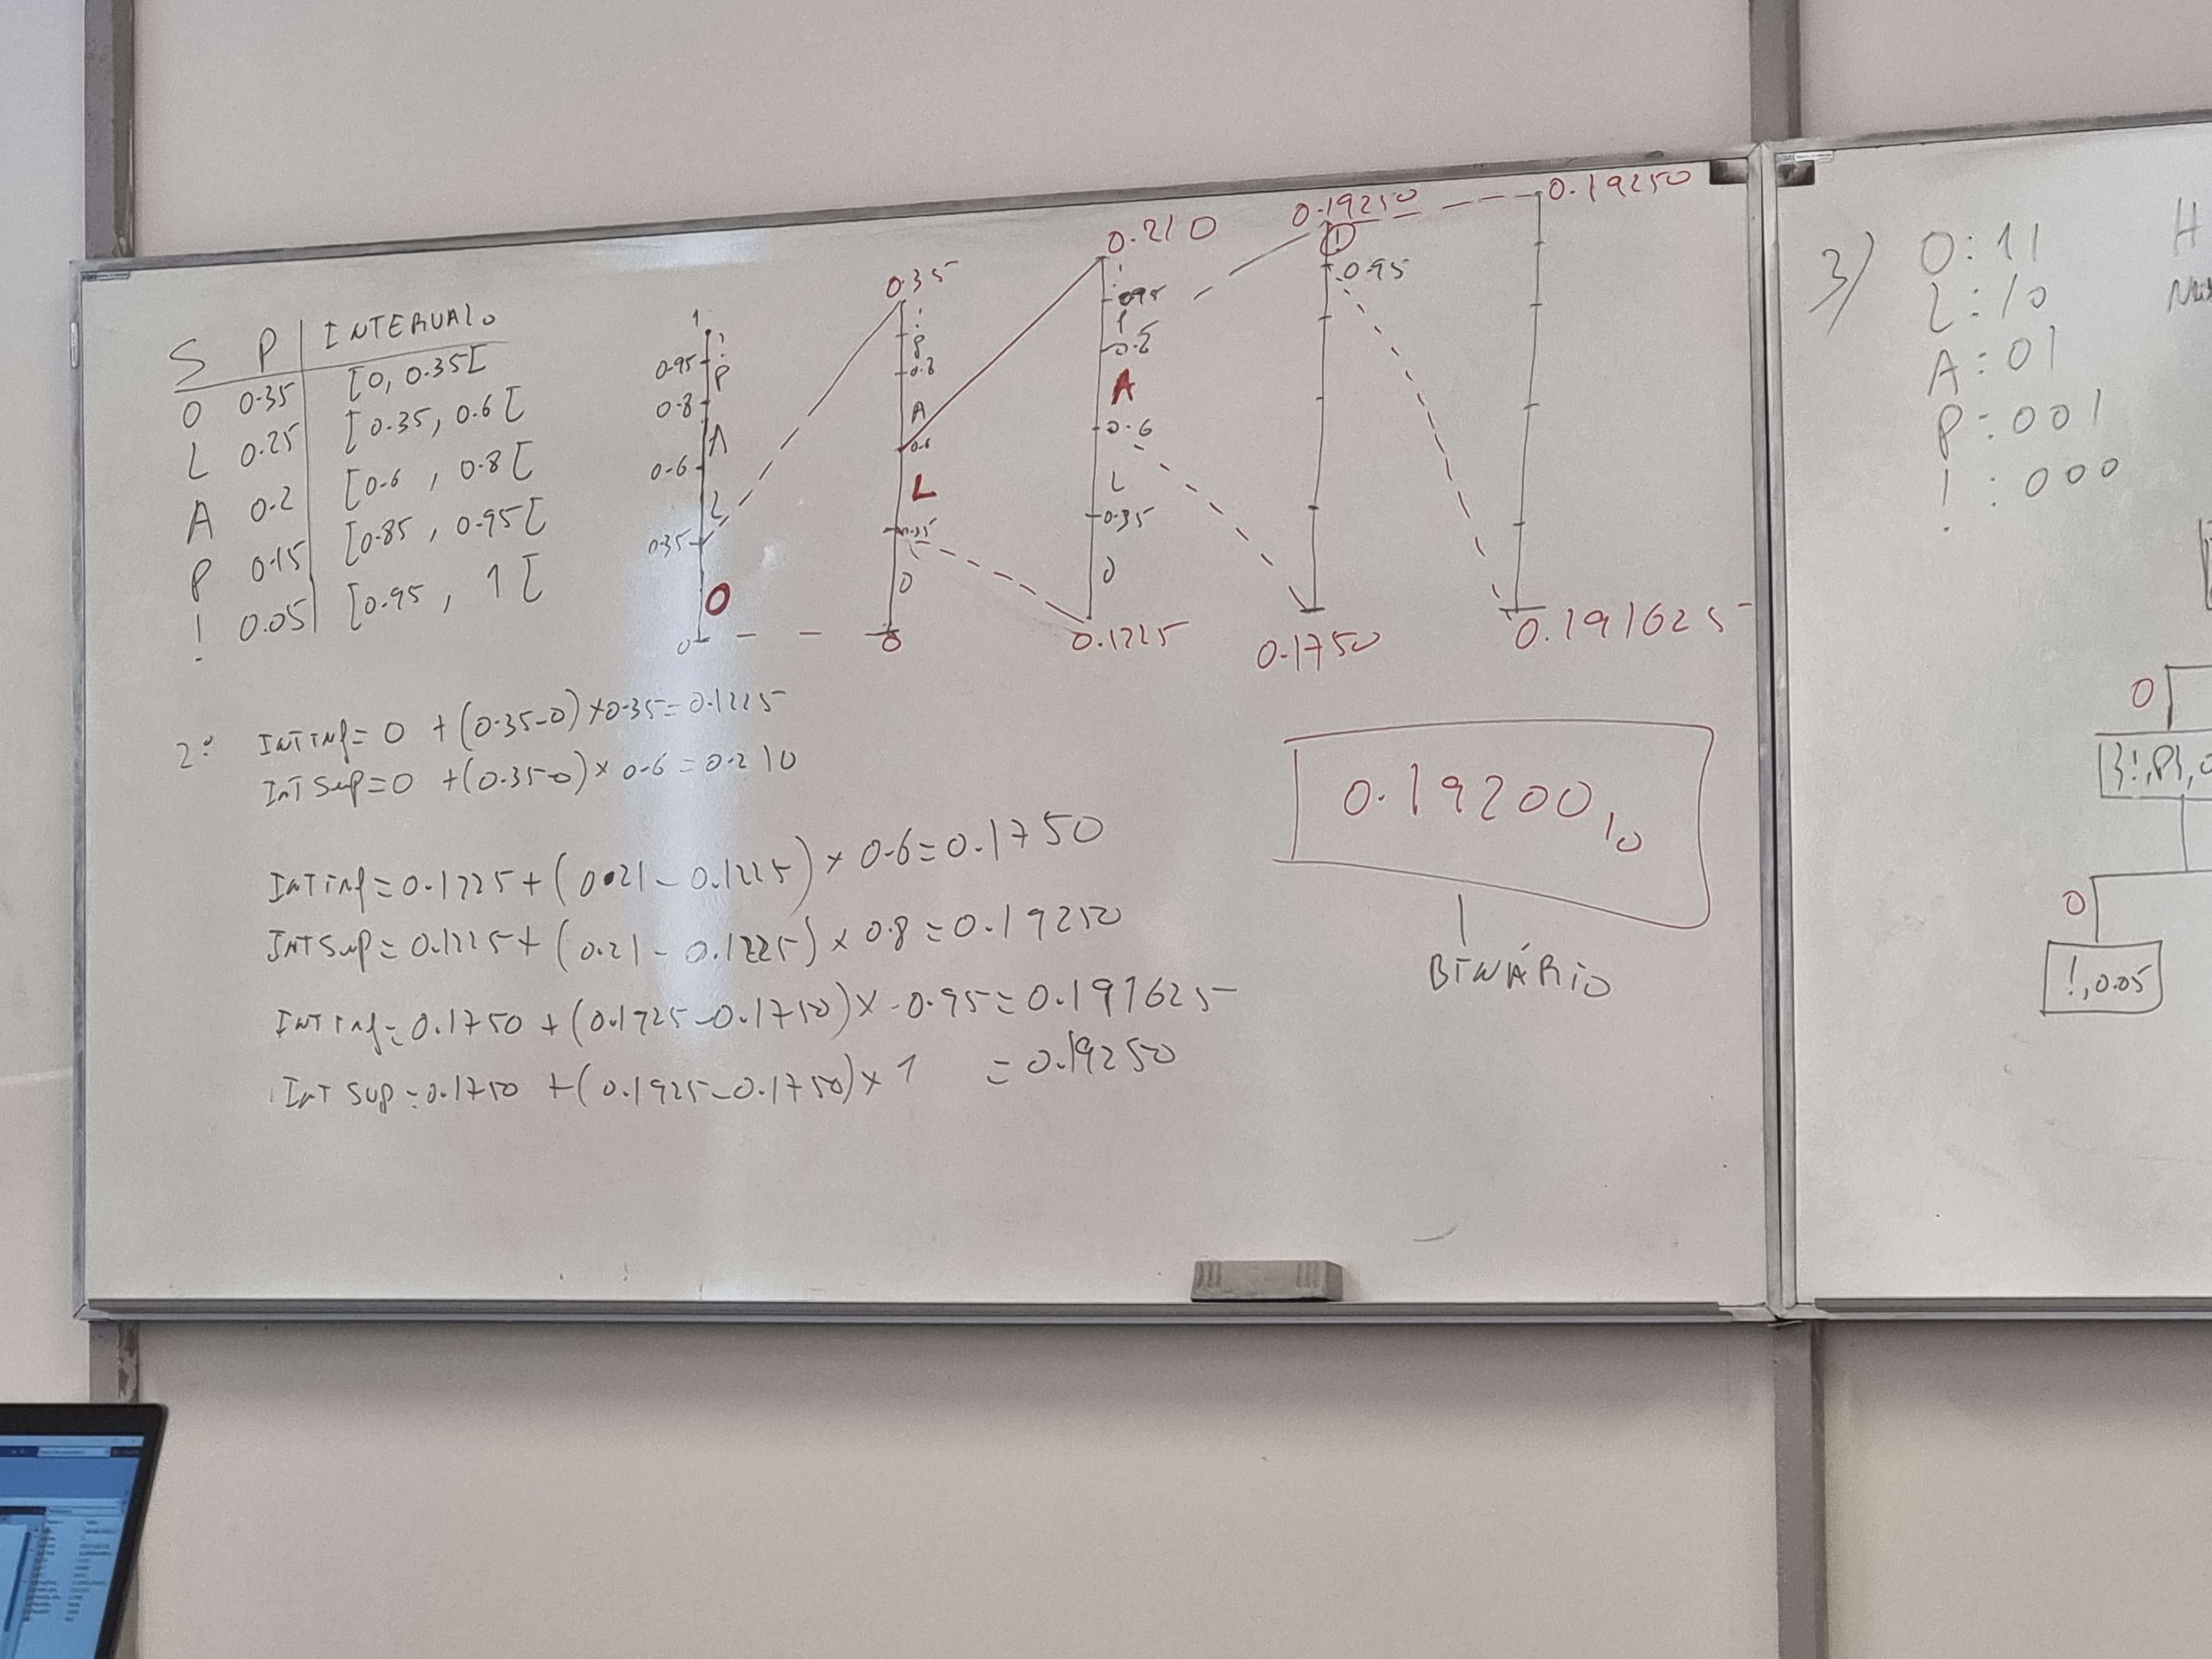 S P INTERVALO
O 0.35 [0, 0.35[
L 0.25 [0.35, 0.6[
A 0.2 [0.6, 0.8[
P 0.15 [0.85, 0.95[
! 0.05 [0.95, 1[
1
!
0.95
P
0.8
A
0.6
L
0.35
O
0
0.35
!
P
0.8
A
0.6
L
0.35
O
0
0.210
!
0.95
P
0.8
A
0.6
L
0.35
O
0.1225
0.19250
!
0.95
0.1750
0.19250
0.191625
2º INT inf = 0 + (0.35-0) × 0.35 = 0.1225
INT Sup = 0 + (0.35-0) × 0.6 = 0.210
INT inf = 0.1225 + (0.21 - 0.1225) × 0.6 = 0.1750
INT Sup = 0.1225 + (0.21 - 0.1225) × 0.8 = 0.19250
INT inf = 0.1750 + (0.1925 - 0.1750) × 0.95 = 0.191625
INT Sup = 0.1750 + (0.1925 - 0.1750) × 1 = 0.19250
0.19200₁₀
BINÁRIO
3) O: 11
L: 10
A: 01
P: 001
!: 000
H
0
0
!, 0.05